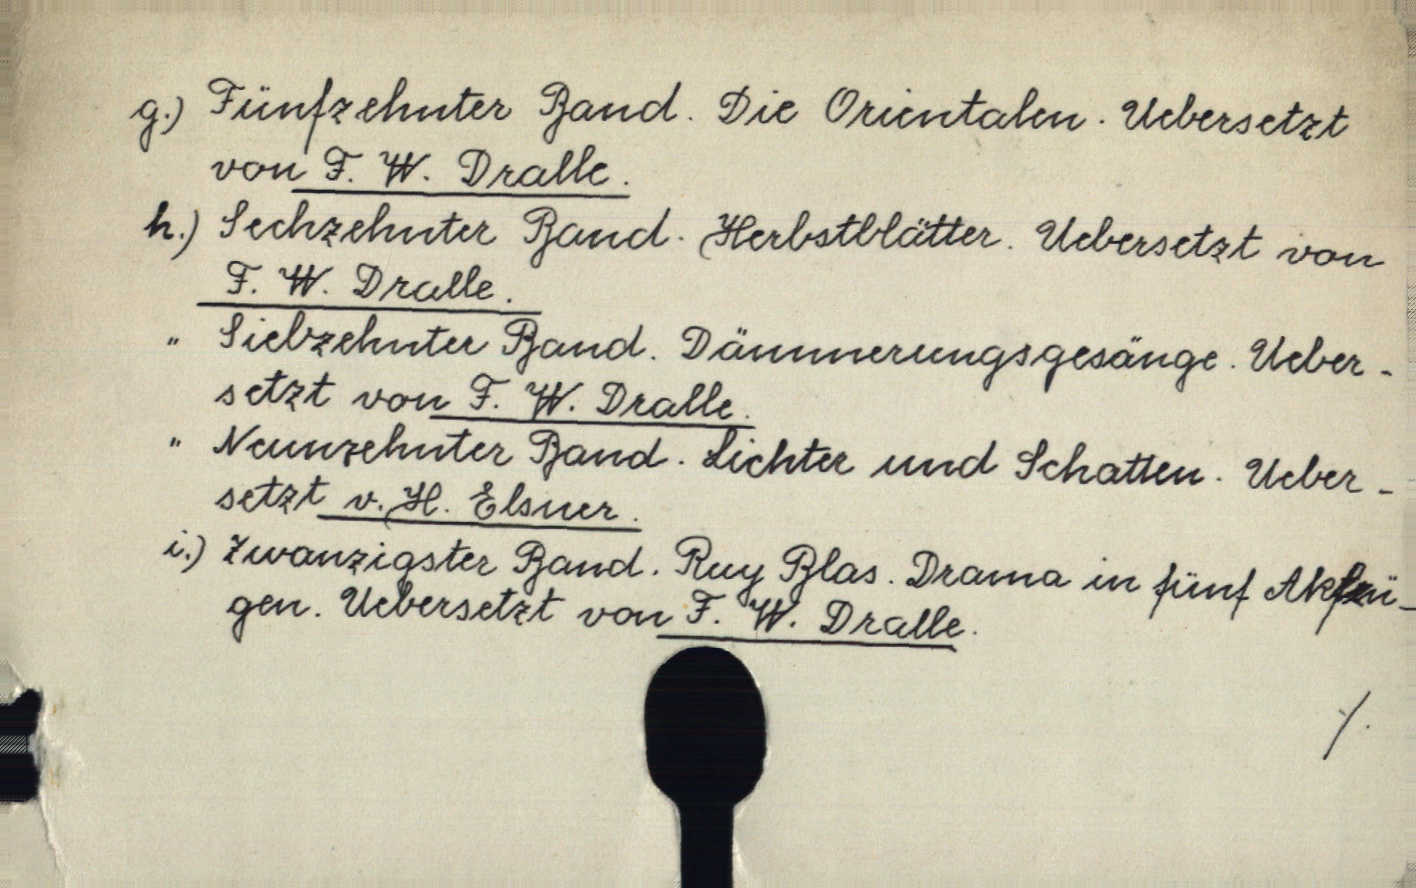 g.) Fünfzehnter Band. Die Orientalen. Uebersetzt
von F. W. Dralle.
h.) Sechzehnter Band. Herbstblätter. Uebersetzt von
F. W. Dralle.
" Siebzehnter Band. Dämmerungsgesänge. Ueber-
setzt von F. W. Dralle.
" Neunzehnter Band. Lichter und Schatten. Ueber-
setzt v. H. Elsner.
i.) Zwanzigster Band. Ruy Blas. Drama in fünf Aufzü-
gen. Uebersetzt von F. W. Dralle.
./.